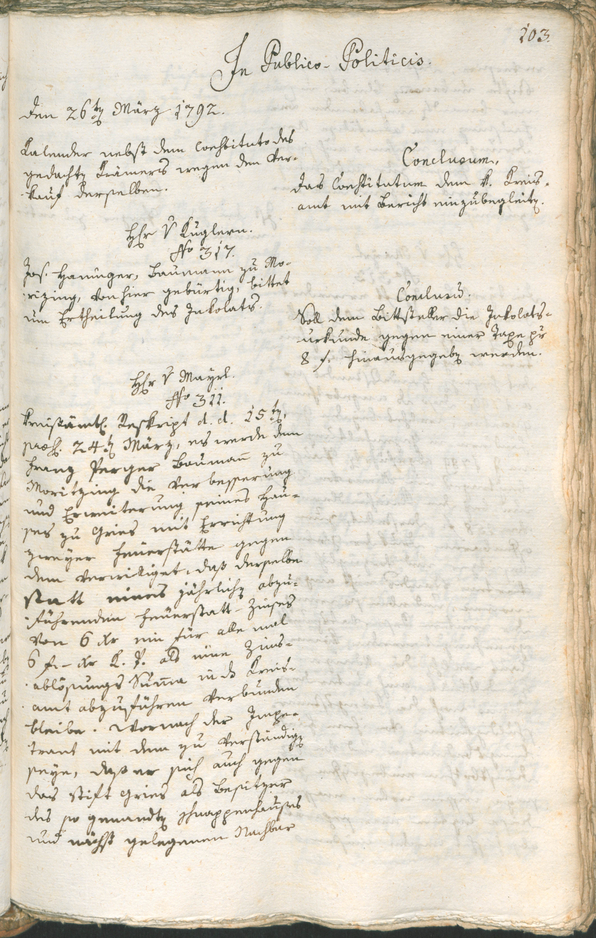 103.
In Publico-Politicis.
Den 26ten März 1792.
Kalender nebst dem Constitutodes
gedachten Krämers wegen den Ver-
kauf derselben.
Conclusum,
das Constitutum dem k. Kreis-
amt mit Bericht einzubegleiten.
Hr v Kuglern.
No 317.
Jos. Haninger, Baumann zu Mo-
rizing, von hier gebürtig, bittet
um Ertheilung des Inkolats.
Conclusum.
Soll dem Bittsteller die Inkolats-
urkunde gegen einer Taxe pr
8 f. hinausgegeben werden.
Hr v Mayrl.
No 311.
Kreisämtl. Reskript d. d. 15ten,
prs. 24ten März, es werde dem
Franz Perger Baumann zu
Moritzing die Verbesserung
und Erweiterung seines Hau-
ses zu Gries mit Errichtung
zweyer Feuerstätte gegen
dem verwilliget, daß derselbe
statt eines jährlichen abzu-
führenden Feuerstatt-Zinses
von 6 xr ein für alle mal
6 f – xr als eine Zins-
ablösungs Summa in das Kreis-
amt abzuführen verbunden
bleibe. Wornach der Impe-
trant mit dem zu verständigen
seye, daß er sich auch gegen
das Stift Gries als Besitzer
des so genandten Schnappenhauses
und nächst gelegenen Nachbar